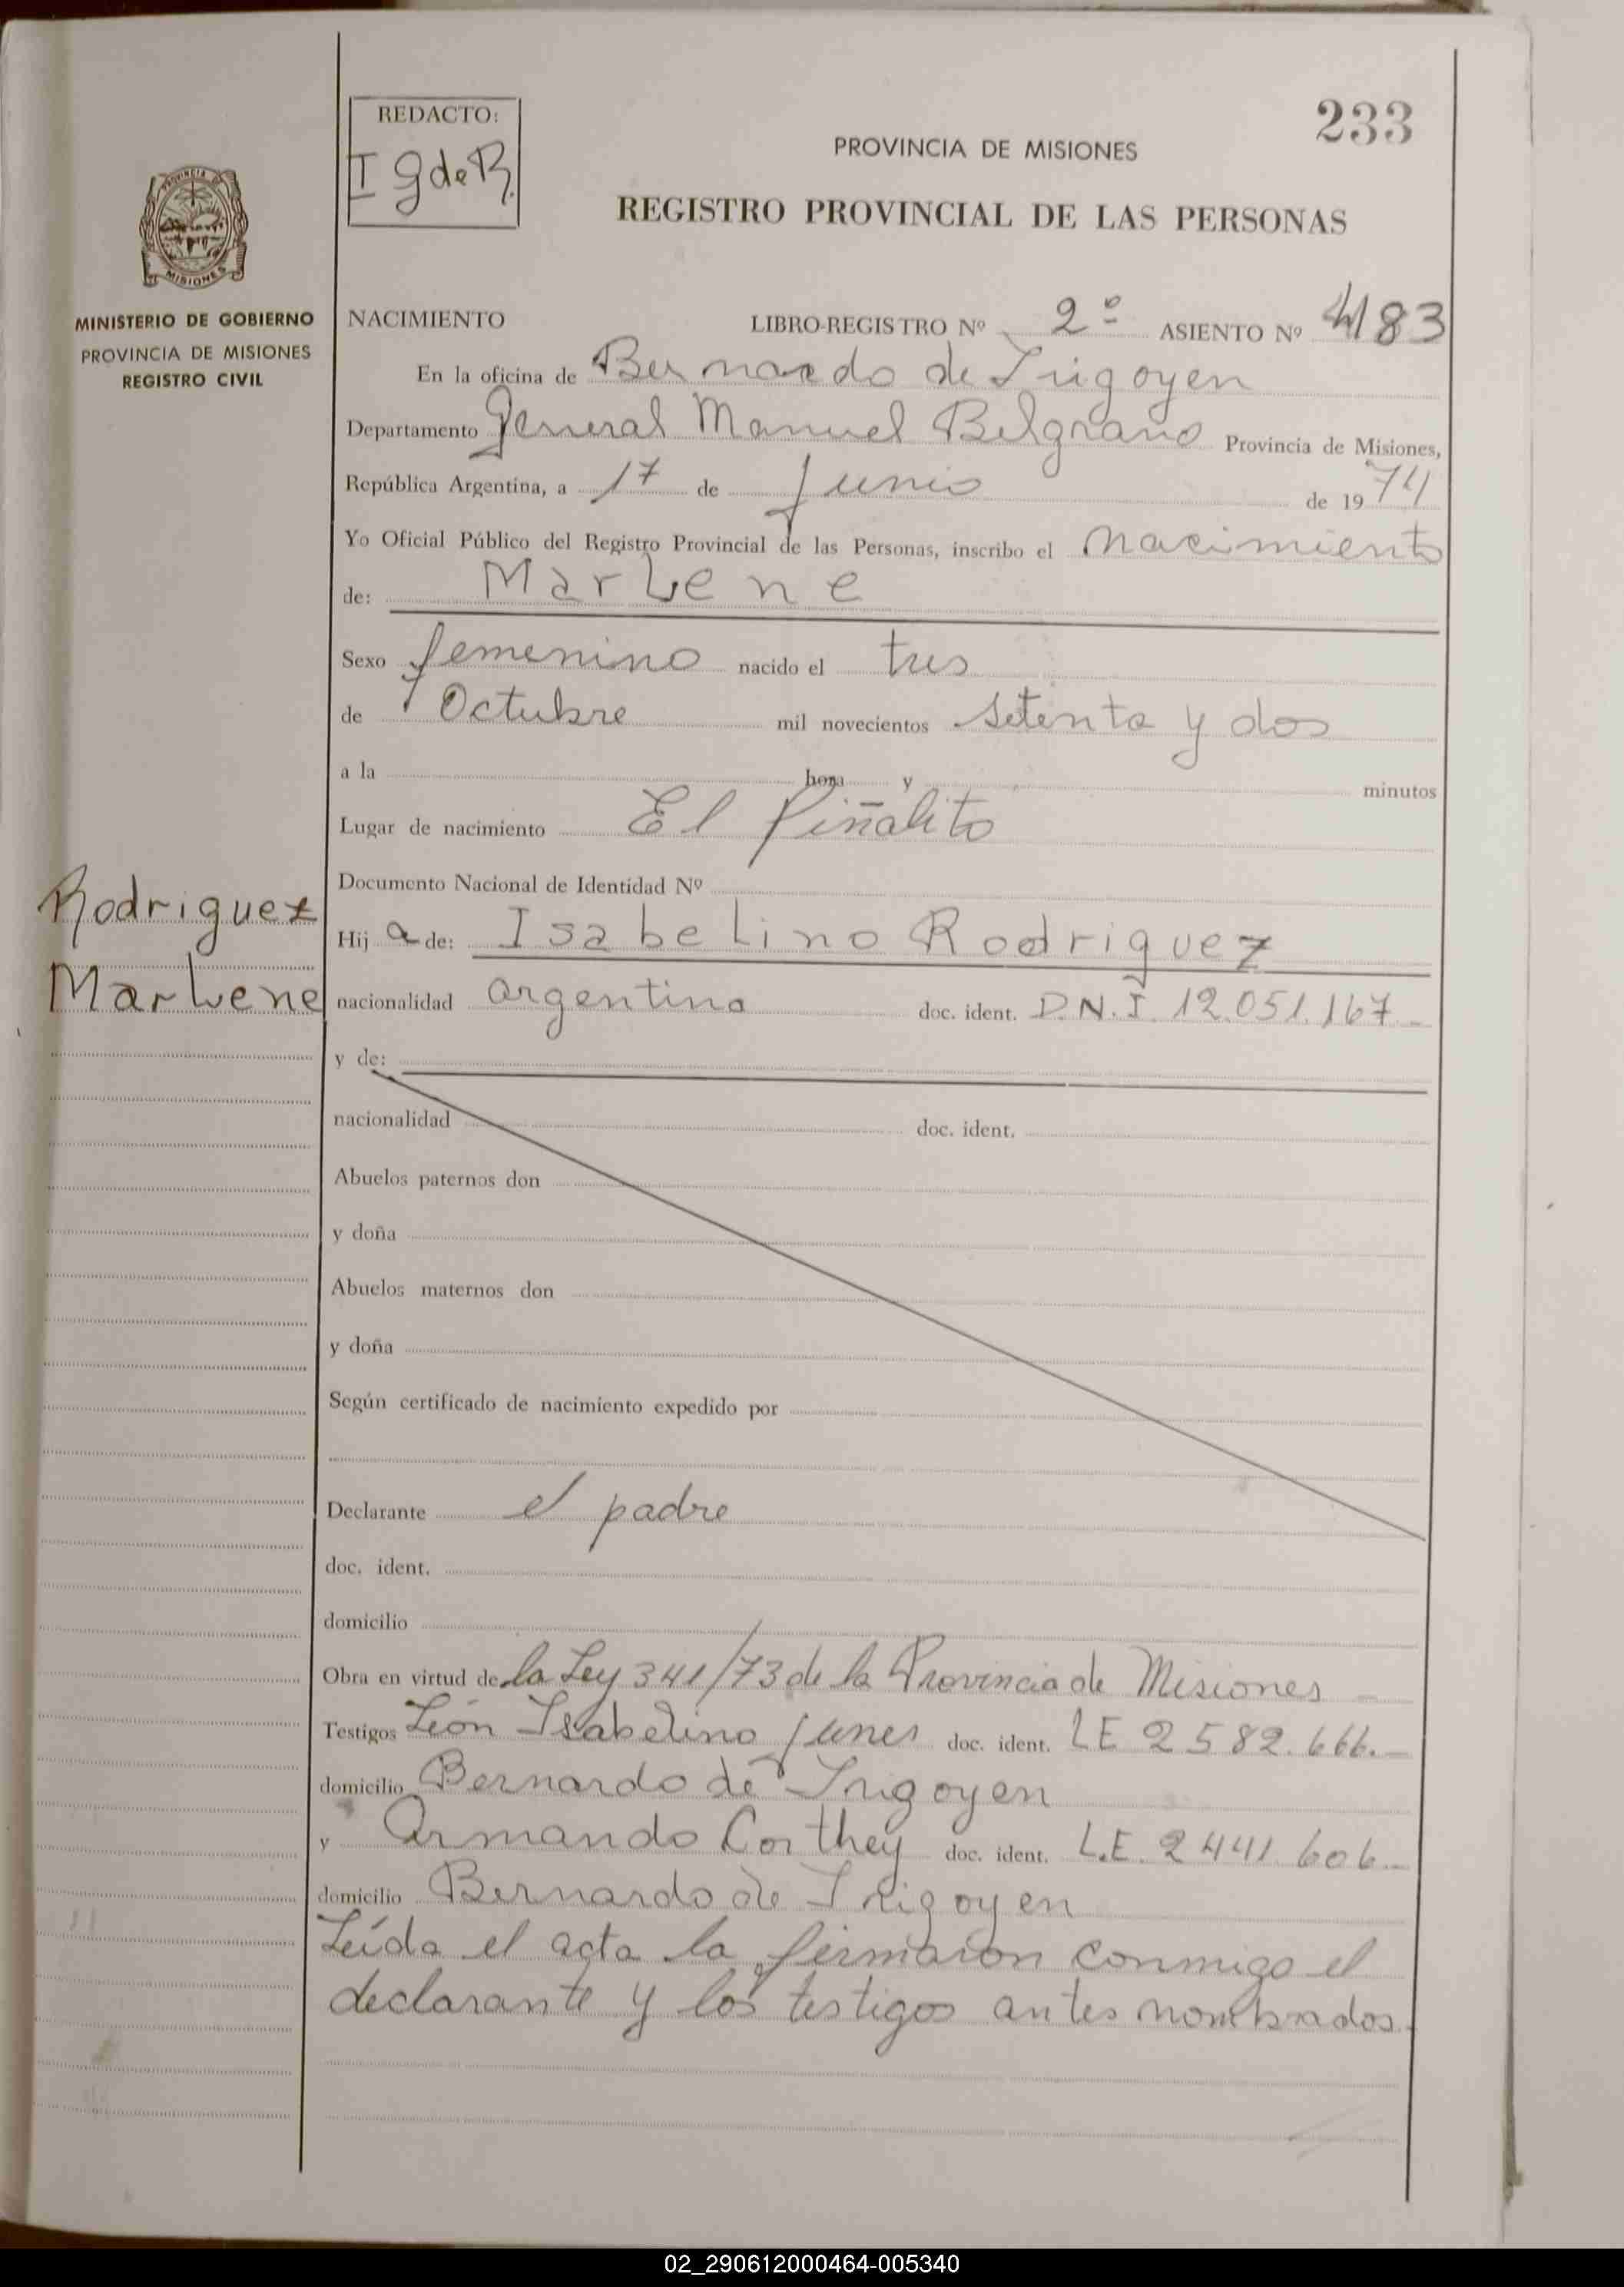 233
REDACTO:
I G de R.
PROVINCIA DE MISIONES
REGISTRO PROVINCIAL DE LAS PERSONAS
PROVINCIA DE
MISIONES
MINISTERIO DE GOBIERNO
PROVINCIA DE MISIONES
REGISTRO CIVIL
NACIMIENTO LIBRO-REGISTRO Nº 2º ASIENTO Nº 483
En la oficina de Bernardo de Irigoyen
Departamento General Manuel Belgrano Provincia de Misiones,
República Argentina, a 17 de Junio de 1974
Yo Oficial Público del Registro Provincial de las Personas, inscribo el nacimiento
de: Marlene
Sexo femenino nacido el tres
de Octubre mil novecientos setenta y dos
a la hora y minutos
Lugar de nacimiento El Piñalito
Documento Nacional de Identidad Nº
Rodriguez
Marlene
Hija de: Isabelino Rodriguez
nacionalidad argentina doc. ident. D.N.I. 12.051.167
y de:
nacionalidad doc. ident.
Abuelos paternos don
y doña
Abuelos maternos don
y doña
Según certificado de nacimiento expedido por
Declarante el padre
doc. ident.
domicilio
Obra en virtud de la Ley 341/73 de la Provincia de Misiones
Testigos León Isabelino Junes doc. ident. LE 2582.666.
domicilio Bernardo de Irigoyen
y Armando Corthey doc. ident. L.E. 2441.606
domicilio Bernardo de Irigoyen
Leída el acta la firmaron conmigo el
declarante y los testigos antes nombrados.
02_290612000464-005340